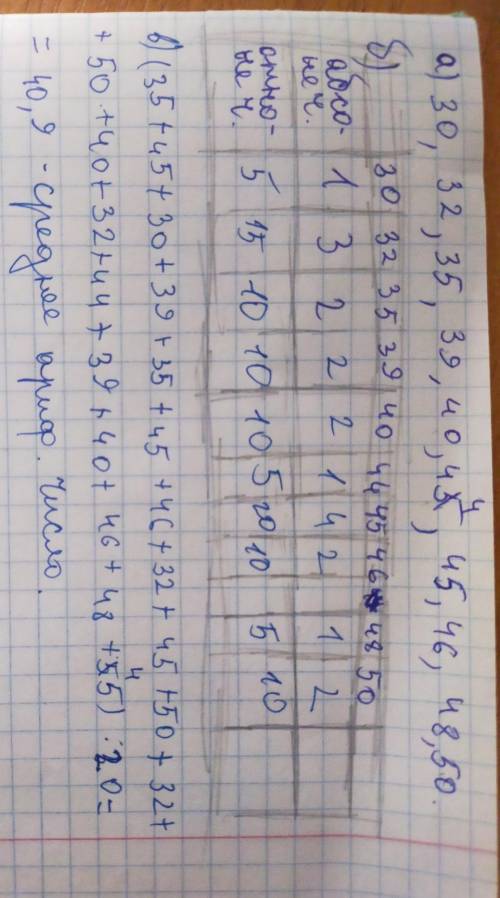 а) 30, 32, 35, 39, 40, 44, 45, 46, 48, 50.
б) 30 32 35 39 40 44 45 46 48 50
абсо- 1 3 2 2 2 1 4 2 1 2
не ч.
отно- 5 15 10 10 10 5 20 10 5 10
не ч.
в) (35+45+30+39+35+45+46+32+45+50+32+
+50+40+32+44+39+40+46+48+45) : 20=
= 40,9 - среднее ариф. число.